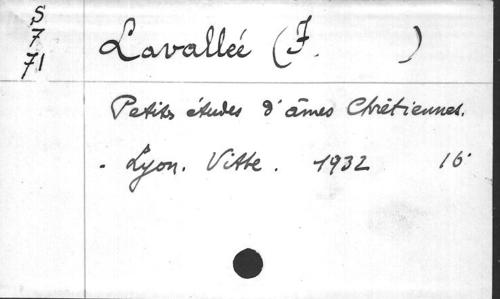 S
7
71
Lavallée (F. )
Petits études d'âmes Chrétiennes.
- Lyon. Vitte. 1932 16°